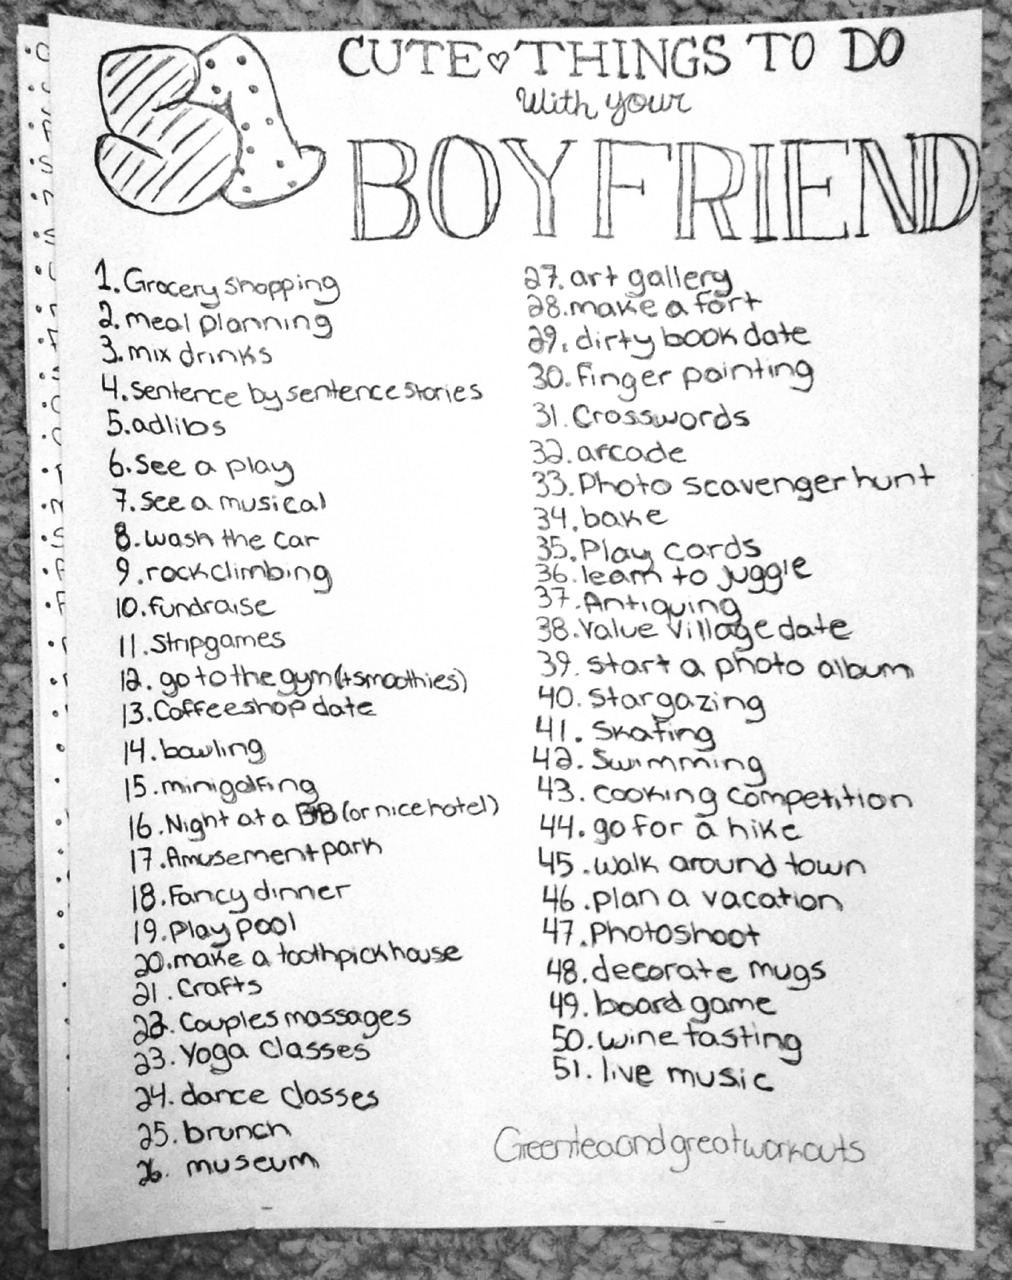 51 CUTE♡THINGS TO DO
With your
BOYFRIEND
1. Grocery shopping
2. meal planning
3. mix drinks
4. sentence by sentence stories
5. adlibs
6. See a play
7. See a musical
8. wash the car
9. rockclimbing
10. fundraise
11. Stripgames
12. go to the gym (+smoothies)
13. Coffeeshop date
14. bowling
15. minigolfing
16. Night at a B&B (or nice hotel)
17. Amusement park
18. Fancy dinner
19. Play pool
20. make a toothpick house
21. Crafts
22. Couples massages
23. Yoga Classes
24. dance classes
25. brunch
26. museum
27. art gallery
28. make a fort
29. dirty book date
30. finger painting
31. Crosswords
32. arcade
33. Photo scavenger hunt
34. bake
35. Play cards
36. learn to juggle
37. Antiquing
38. Value Village date
39. start a photo album
40. stargazing
41. Skating
42. Swimming
43. cooking competition
44. go for a hike
45. walk around town
46. plan a vacation
47. Photoshoot
48. decorate mugs
49. board game
50. wine tasting
51. live music
Greenteaandgreatworkouts